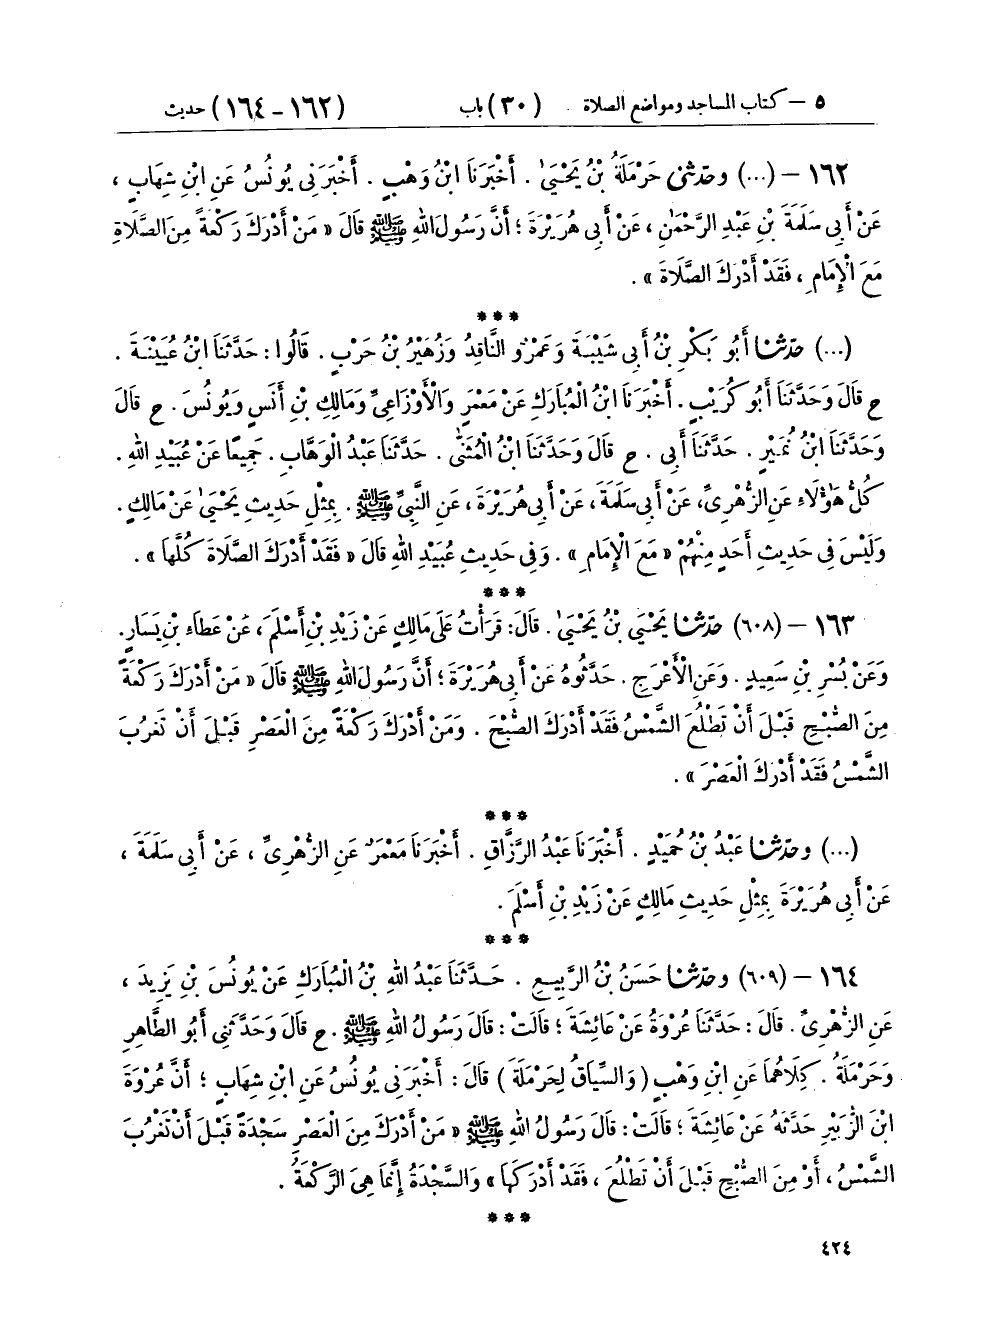 ٥ – كتاب المساجد ومواضع الصلاة (٣٠) باب (١٦٢ – ١٦٤) حديث
١٦٢ – (...) وحَدَّثَنِي حَرْمَلَةُ بْنُ يَحْيَىٰ . أَخْبَرَنَا ابْنُ وَهْبٍ . أَخْبَرَنِي يُونُسُ عَنِ ابْنِ شِهَابٍ ،
عَنْ أَبِي سَلَمَةَ بْنِ عَبْدِ الرَّحْمَٰنِ ، عَنْ أَبِي هُرَيْرَةَ ؛ أَنَّ رَسُولَ اللهِ ﷺ قَالَ « مَنْ أَدْرَكَ رَكْعَةً مِنَ الصَّلَاةِ
مَعَ الْإِمَامِ ، فَقَدْ أَدْرَكَ الصَّلَاةَ » .
***
(...) حَدَّثَنَا أَبُو بَكْرِ بْنُ أَبِي شَيْبَةَ وَعَمْرٌو النَّاقِدُ وَزُهَيْرُ بْنُ حَرْبٍ . قَالُوا : حَدَّثَنَا ابْنُ عُيَيْنَةَ .
ح قَالَ وَحَدَّثَنَا أَبُو كُرَيْبٍ . أَخْبَرَنَا ابْنُ الْمُبَارَكِ عَنْ مَعْمَرٍ وَالْأَوْزَاعِيِّ وَمَالِكِ بْنِ أَنَسٍ وَيُونُسَ . ح قَالَ
وَحَدَّثَنَا ابْنُ نُمَيْرٍ . حَدَّثَنَا أَبِي . ح قَالَ وَحَدَّثَنَا ابْنُ الْمُثَنَّىٰ . حَدَّثَنَا عَبْدُ الْوَهَّابِ . جَمِيعًا عَنْ عُبَيْدِ اللهِ .
كُلُّ هَٰؤُلَاءِ عَنِ الزُّهْرِيِّ، عَنْ أَبِي سَلَمَةَ ، عَنْ أَبِي هُرَيْرَةَ ، عَنِ النَّبِيِّ ﷺ . بِمِثْلِ حَدِيثِ يَحْيَىٰ عَنْ مَالِكٍ .
وَلَيْسَ فِي حَدِيثِ أَحَدٍ مِنْهُمْ « مَعَ الْإِمَامِ » . وَفِي حَدِيثِ عُبَيْدِ اللهِ قَالَ « فَقَدْ أَدْرَكَ الصَّلَاةَ كُلَّهَا » .
***
١٦٣ – (٦٠٨) حَدَّثَنَا يَحْيَى بْنُ يَحْيَىٰ . قَالَ : قَرَأْتُ عَلَى مَالِكٍ عَنْ زَيْدِ بْنِ أَسْلَمَ ، عَنْ عَطَاءِ بْنِ يَسَارٍ .
وَعَنْ بُسْرِ بْنِ سَعِيدٍ . وَعَنِ الْأَعْرَجِ . حَدَّثُوهُ عَنْ أَبِي هُرَيْرَةَ ؛ أَنَّ رَسُولَ اللهِ ﷺ قَالَ « مَنْ أَدْرَكَ رَكْعَةً
مِنَ الصُّبْحِ قَبْلَ أَنْ تَطْلُعَ الشَّمْسُ فَقَدْ أَدْرَكَ الصُّبْحَ . وَمَنْ أَدْرَكَ رَكْعَةً مِنَ الْعَصْرِ قَبْلَ أَنْ تَغْرُبَ
الشَّمْسُ فَقَدْ أَدْرَكَ الْعَصْرَ » .
***
(...) وحَدَّثَنَا عَبْدُ بْنُ حُمَيْدٍ . أَخْبَرَنَا عَبْدُ الرَّزَّاقِ . أَخْبَرَنَا مَعْمَرٌ عَنِ الزُّهْرِيِّ ، عَنْ أَبِي سَلَمَةَ ،
عَنْ أَبِي هُرَيْرَةَ بِمِثْلِ حَدِيثِ مَالِكٍ عَنْ زَيْدِ بْنِ أَسْلَمَ .
***
١٦٤ – (٦٠٩) وحَدَّثَنَا حَسَنُ بْنُ الرَّبِيعِ . حَدَّثَنَا عَبْدُ اللهِ بْنُ الْمُبَارَكِ عَنْ يُونُسَ بْنِ يَزِيدَ ،
عَنِ الزُّهْرِيِّ . قَالَ : حَدَّثَنَا عُرْوَةُ عَنْ عَائِشَةَ ؛ قَالَتْ : قَالَ رَسُولُ اللهِ ﷺ . ح قَالَ وَحَدَّثَنِي أَبُو الطَّاهِرِ
وَحَرْمَلَةُ . كِلَاهُمَا عَنِ ابْنِ وَهْبٍ ( وَالسِّيَاقُ لِحَرْمَلَةَ ) قَالَ : أَخْبَرَنِي يُونُسُ عَنِ ابْنِ شِهَابٍ ؛ أَنَّ عُرْوَةَ
ابْنَ الزُّبَيْرِ حَدَّثَهُ عَنْ عَائِشَةَ ؛ قَالَتْ : قَالَ رَسُولُ اللهِ ﷺ « مَنْ أَدْرَكَ مِنَ الْعَصْرِ سَجْدَةً قَبْلَ أَنْ تَغْرُبَ
الشَّمْسُ ، أَوْ مِنَ الصُّبْحِ قَبْلَ أَنْ تَطْلُعَ ، فَقَدْ أَدْرَكَهَا » وَالسَّجْدَةُ إِنَّمَا هِيَ الرَّكْعَةُ .
***
٤٢٤